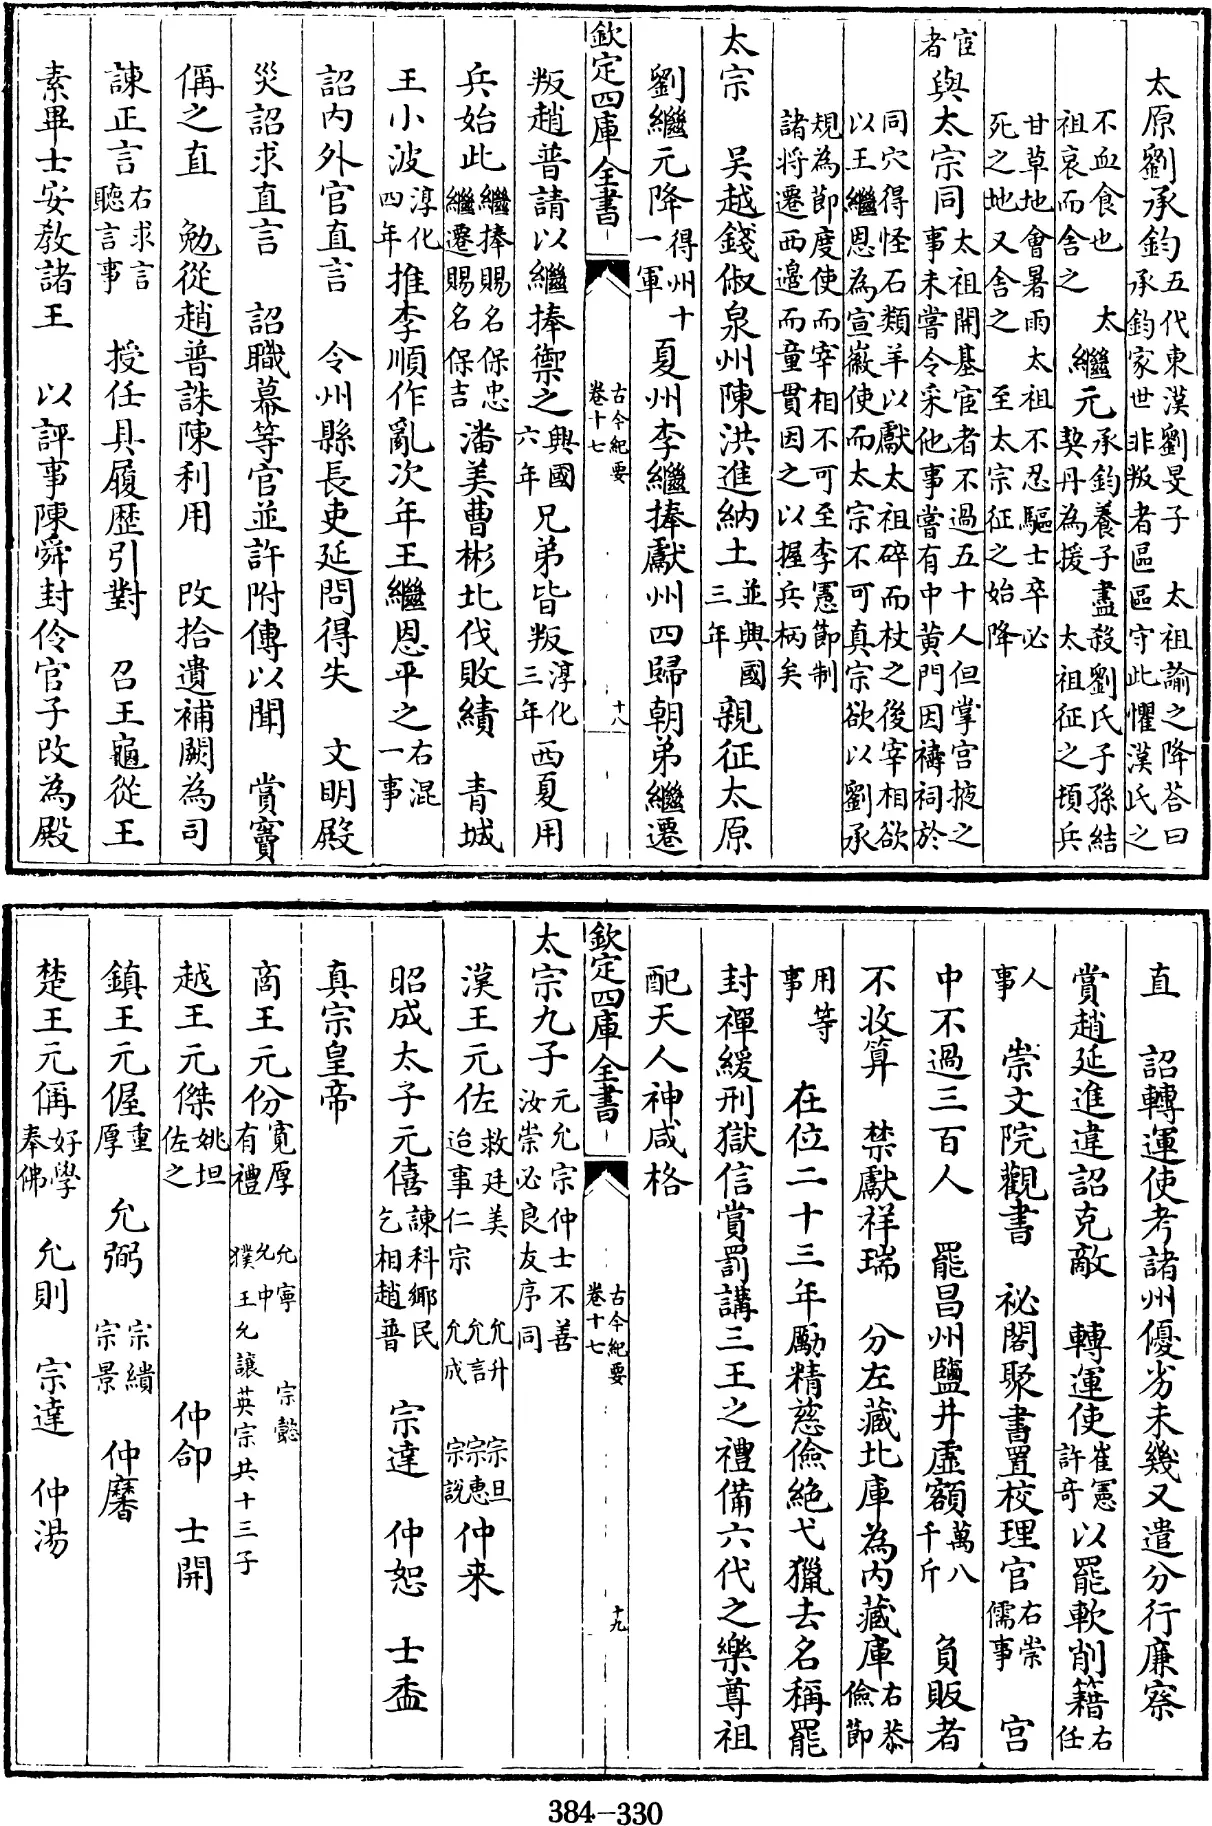 太原劉承鈞五代東漢劉旻子　太祖諭之降荅曰承鈞家世非叛者區區守此懼漢氏之
不血食也祖哀而舍之　太繼元承鈞養子盡殺劉氏子孫結契丹為援　太祖征之頓兵
甘草地會暑雨太祖不忍驅士卒必死之地又舍之　至太宗征之始降
宦者與太宗同事太祖開基宦者不過五十人但掌宮掖之未嘗令采他事嘗有中黄門因禱祠於
同穴得怪石類羊以獻太祖碎而杖之後宰相欲以王繼恩為宣徽使而太宗不可真宗欲以劉承
規為節度使而宰相不可至李憲節制諸将遷西邊而童貫因之以握兵柄矣
太宗　吴越錢俶泉州陳洪進納土並興國三年　親征太原
劉繼元降得州十一軍　夏州李繼捧獻州四歸朝弟繼遷
欽定四庫全書　古今紀要卷十七　十八
叛趙普請以繼捧禦之興國六年　兄弟皆叛淳化三年　西夏用
兵始此繼捧賜名保忠繼遷賜名保吉　潘美曹彬北伐敗績　青城
王小波淳化四年推李順作亂次年王繼恩平之右混一事
詔内外官直言　令州縣長吏延問得失　文明殿
災詔求直言　詔職幕等官並許附傳以聞　賞竇
偁之直　勉從趙普誅陳利用　改拾遺補闕為司
諫正言右求言聽言事　授任具履歴引對　召王龜從王
素畢士安教諸王　以評事陳舜封伶官子改為殿
直　詔轉運使考諸州優劣未幾又遣分行廉察
賞趙延進違詔克敵　轉運使崔憲許奇以罷軟削籍右任
人事　崇文院觀書　祕閣聚書置校理官右崇儒事　宫
中不過三百人　罷昌州鹽井虚額萬八千斤　負販者
不收算　禁獻祥瑞　分左藏北庫為内藏庫右恭儉節
用等事　在位二十三年勵精慈儉絶弋獵去名稱罷
封禪緩刑獄信賞罰講三王之禮備六代之樂尊祖
配天人神咸格
欽定四庫全書　古今紀要卷十七　十九
太宗九子元允宗仲士不善汝崇必良友序同
漢王元佐救廷美迨事仁宗　允升允言允成　宗旦宗惠宗說　仲来
昭成太子元僖諫科鄉民乞相趙普　宗達　仲恕　士盉
真宗皇帝
商王元份寛厚有禮　允寧允中　濮王允讓英宗共十三子　宗懿
越王元傑姚坦佐之　仲郃　士開
鎮王元偓重厚　允弼　宗繢宗景　仲䕻
楚王元偁好學奉佛　允則　宗達　仲湯
384-330